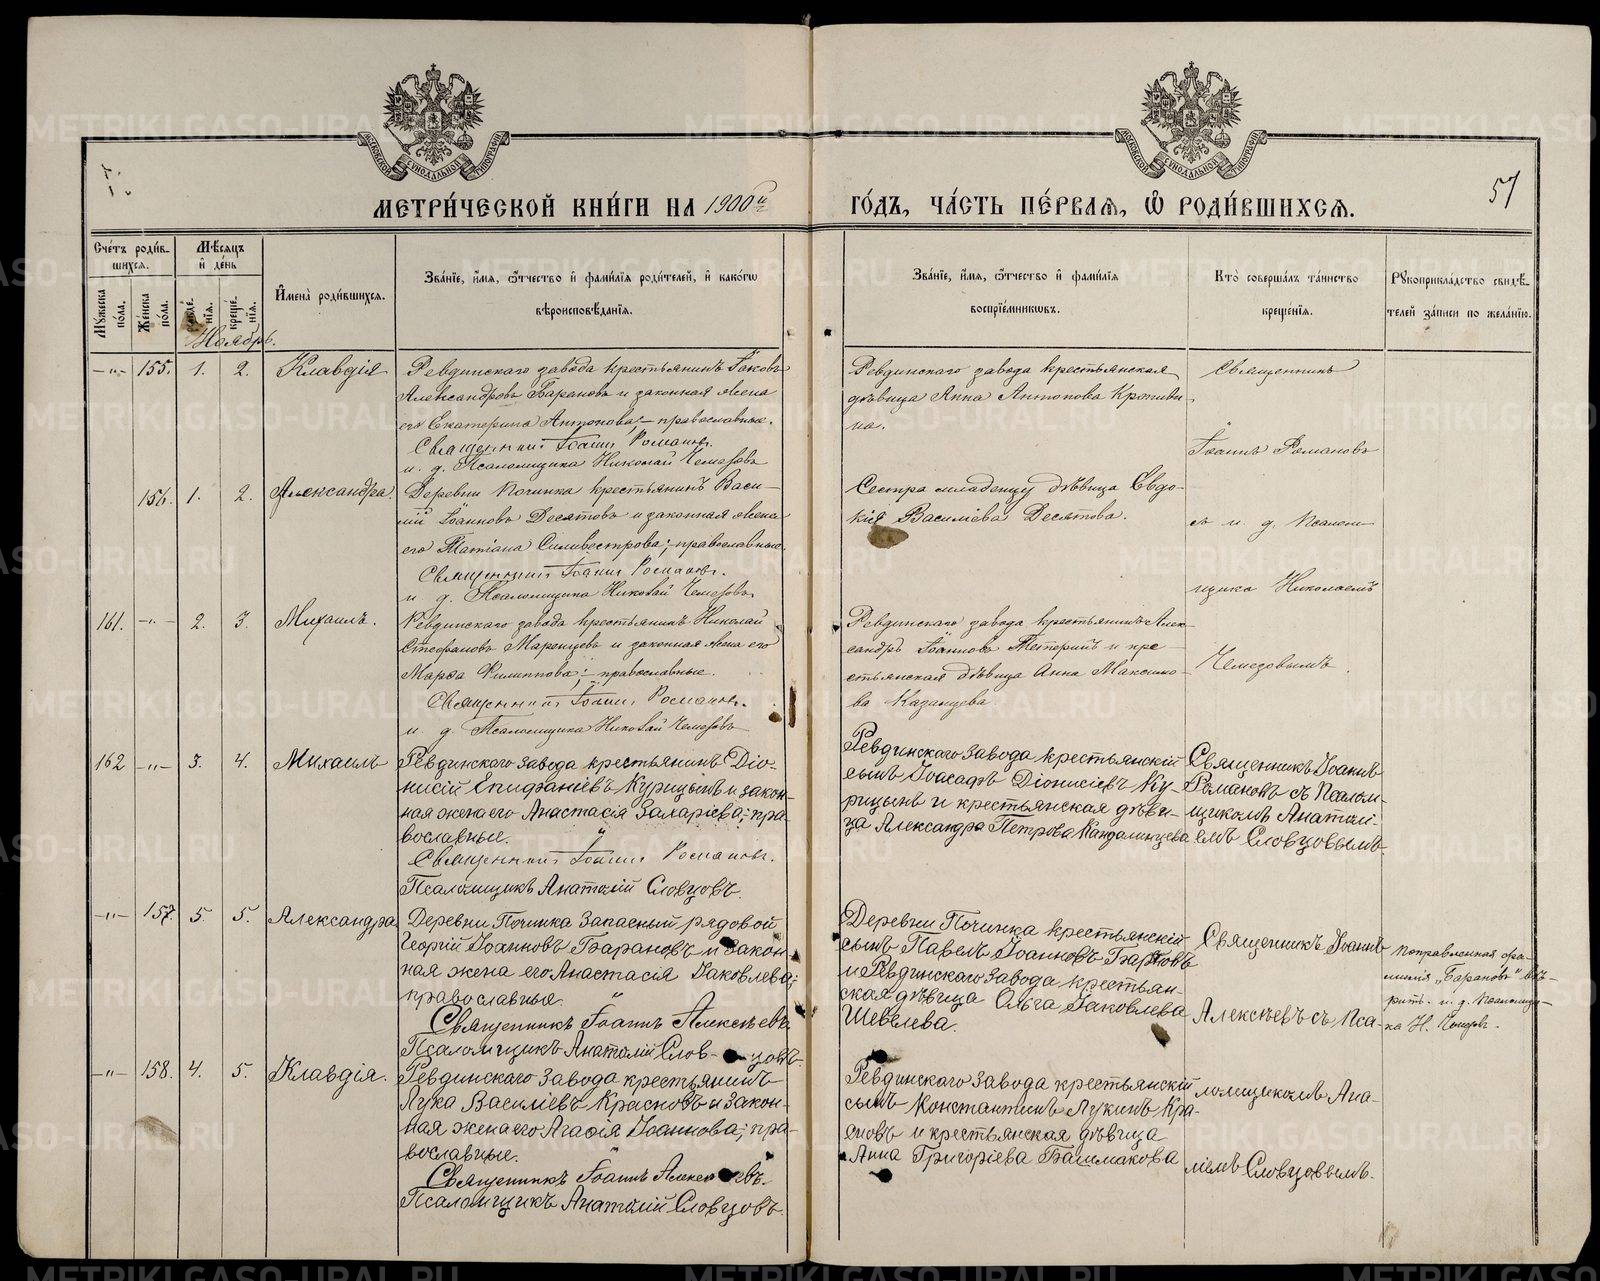 МЕТРИ́ЧЕСКОЙ КНИ́ГИ НА 1900й
ГО́ДЪ, ЧА́СТЬ ПЕ́РВАѦ, Ѡ҆ РОДИ́ВШИХСѦ.
57
Сче́тъ роди́в-
шихся.
Мѣ́сяцъ
и҆ де́нь
Му́жеска
по́ла.
Же́нска
по́ла.
креще́-
нїѧ.
И҆мена̀ роди́вшихся.
Зва́нїе, и҆́мѧ, ѻ҆́тчество и҆ фами́лїѧ роди́телей, и҆ како́гѡ
вѣроисповѣ́данїѧ.
Зва́нїе, и҆́мѧ, ѻ҆́тчество и҆ фами́лїѧ
воспрїе́мникѡвъ.
Кто̀ соверша́лъ та́инство
креще́нїѧ.
Рꙋкоприкла́дство свидѣ́-
телей за́писи по жела́нїю.
Ноябрь.
—"— 155. 1. 2. Клавдія
Ревдинскаго завода крестьянинъ Іаковъ
Александровъ Барановъ и законная жена
его Екатерина Антонова; — православные.
Священникъ Іоаннъ Романовъ.
и. д. Псаломщика Николай Чемезовъ
Ревдинскаго завода крестьянская
дѣвица Анна Антонова Крапиви-
на.
Священникъ
Іоаннъ Романовъ
156. 1. 2. Александра.
Деревни Починка крестьянинъ Васи-
лій Іоанновъ Десятовъ и законная жена
его Татіана Силивестрова; — православные.
Священникъ Іоаннъ Романовъ.
и. д. Псаломщика Николай Чемезовъ
Сестра младенцу дѣвица Евдо-
кія Василіева Десятова.
съ и. д. Псалом-
щика Николаемъ
161. —"— 2. 3. Михаилъ.
Ревдинскаго завода крестьянинъ Николай
Стефановъ Маренцевъ и законная жена его
Марѳа Филиппова; — православные.
Священникъ Іоаннъ Романовъ.
и. д. Псаломщика Николай Чемезовъ
Ревдинскаго завода крестьянинъ Алек-
сандръ Іоанновъ и кре-
стьянская дѣвица Анна Максимо-
ва Казанцева.
Чемезовымъ.
162 —"— 3. 4. Михаилъ
Ревдинскаго завода крестьянинъ Діо-
нисій Епифаніевъ Курицынъ и закон-
ная жена его Анастасія Захаріева; — пра-
вославные.
Священникъ Іоаннъ Романовъ.
Псаломщикъ Анатолій Словцовъ.
Ревдинскаго завода крестьянскій
сынъ Іоасафъ Діонисіевъ Ку-
рицынъ и крестьянская дѣви-
ца Александра Петрова
Священникъ Іоаннъ
Романовъ съ Псалом-
щикомъ Анатолі-
емъ Словцовымъ.
—"— 157. 5. 5. Александра
Деревни Починка запасный рядовой
Георгій Іоанновъ Барановъ и закон-
ная жена его Анастасія Іаковлева;
православные.
Священникъ Іоаннъ Алексѣевъ
Псаломщикъ Анатолій Слов- цовъ.
Деревни Починка крестьянскій
сынъ Павелъ Іоанновъ Барановъ
и Ревдинскаго завода крестьян-
ская дѣвица Ольга Іаковлева
Шевелева.
Священникъ Іоаннъ
Алексѣевъ съ Пса-
Поправленная фа-
милія "Барановъ" вѣ-
рить. и. д. Псаломщи-
ка Н.
—"— 158. 4. 5. Клавдія.
Ревдинскаго завода крестьянинъ
Лука Василіевъ Красновъ и закон-
ная жена его Агафія Іоаннова; — пра-
вославные.
Священникъ Іоаннъ Алексѣевъ.
Псаломщикъ Анатолій Словцовъ.
Ревдинскаго завода крестьянскій
сынъ Константинъ Лукинъ Кра-
сновъ и крестьянская дѣвица
Анна Григоріева Башмакова
ломщикомъ Ана-
ліемъ Словцовымъ.
METRIKI.GASO-URAL.RU